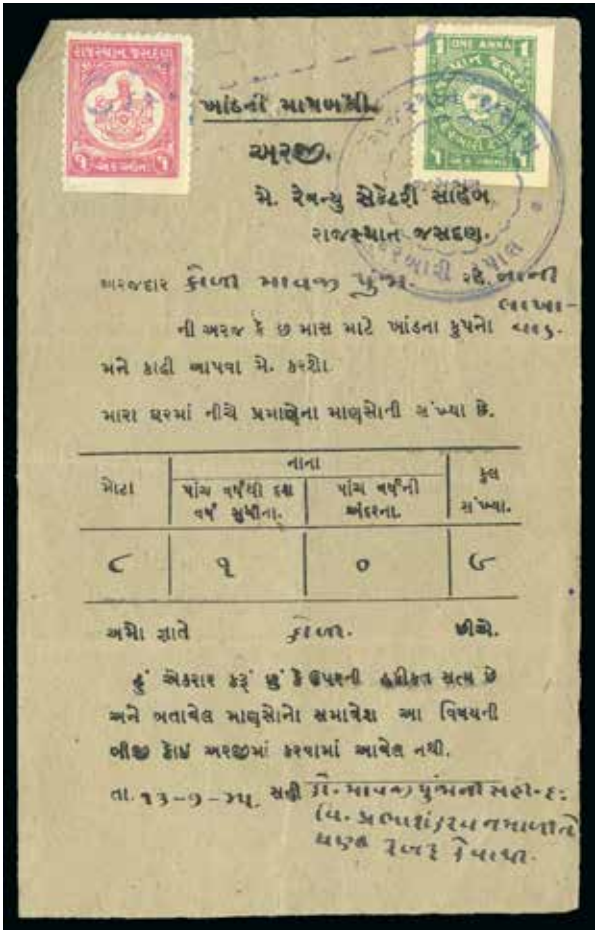 રાજસ્થાન જસદણ
૧ ૧
એક આનો
ONE ANNA
1 1
ખાંડની માપબંધી.
અરજી.
મે. રેવન્યુ સેક્રેટરી સાહિબ
રાજસ્થાન જસદણ.
અરજદાર કોળી માવજી પુંજા. રહે. નાની
લાખા-
ની અરજ કે છ માસ માટે ખાંડના કુપનો વાડ.
મને કાઢી આપવા મે. કરશો.
મારા ઘરમાં નીચે પ્રમાણેના માણસોની સંખ્યા છે.
મોટા નાના કુલ સંખ્યા.
પાંચ વર્ષથી દશ વર્ષ સુધીના. પાંચ વર્ષની અંદરના.
૮ ૧ ૦ ૯
અમો જ્ઞાતે કોળી. છીએ.
હું એકરાર કરૂં છું કે ઉપરની હકીકત સત્ય છે
અને બતાવેલ માણસોનો સમાવેશ આ વિષયની
બીજી કોઈ અરજીમાં કરવામાં આવેલ નથી.
તા. ૧૩-૭-૪૫. સહી કો. માવજી પુંજાની સહી-દઃ
પ્રભાશંકર વનમાળીને